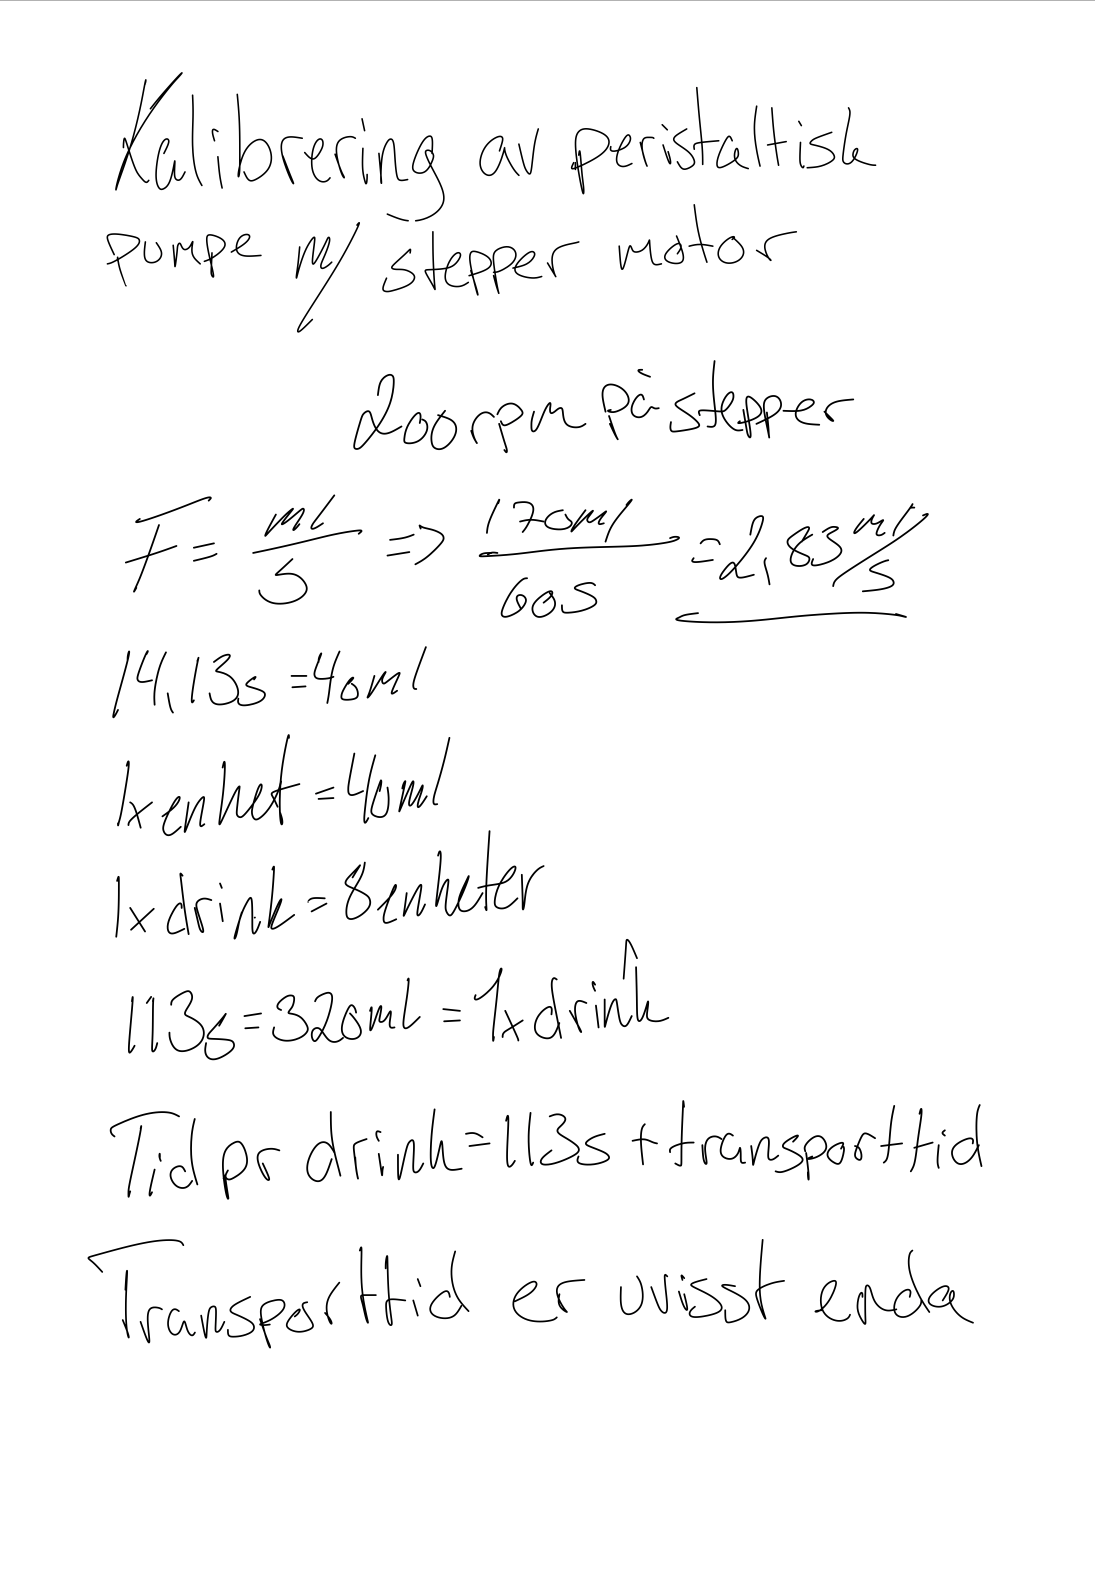 Kalibrering av peristaltisk
pumpe m/ stepper motor
200rpm på stepper
F = ml/s => 170ml/60s = 2,83 ml/s
14,13s = 40ml
1x enhet = 40ml
1x drink = 8 enheter
113s = 320ml = 1x drink
Tid pr drink = 113s + transporttid
Transporttid er uvisst enda